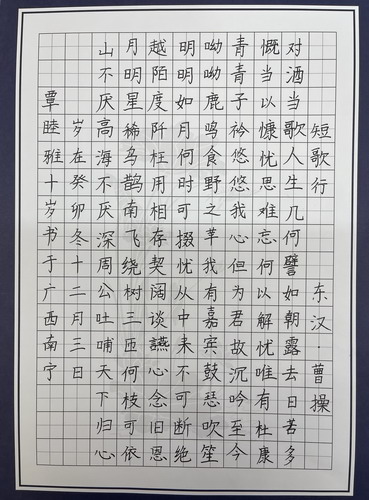 短歌行 东汉·曹操
对酒当歌人生几何譬如朝露去日苦多
慨当以慷忧思难忘何以解忧唯有杜康
青青子衿悠悠我心但为君故沉吟至今
呦呦鹿鸣食野之苹我有嘉宾鼓瑟吹笙
明明如月何时可掇忧从中来不可断绝
越陌度阡枉用相存契阔谈讌心念旧恩
月明星稀乌鹊南飞绕树三匝何枝可依
山不厌高海不厌深周公吐哺天下归心
岁在癸卯冬十二月三日
覃睦雅十岁书于广西南宁